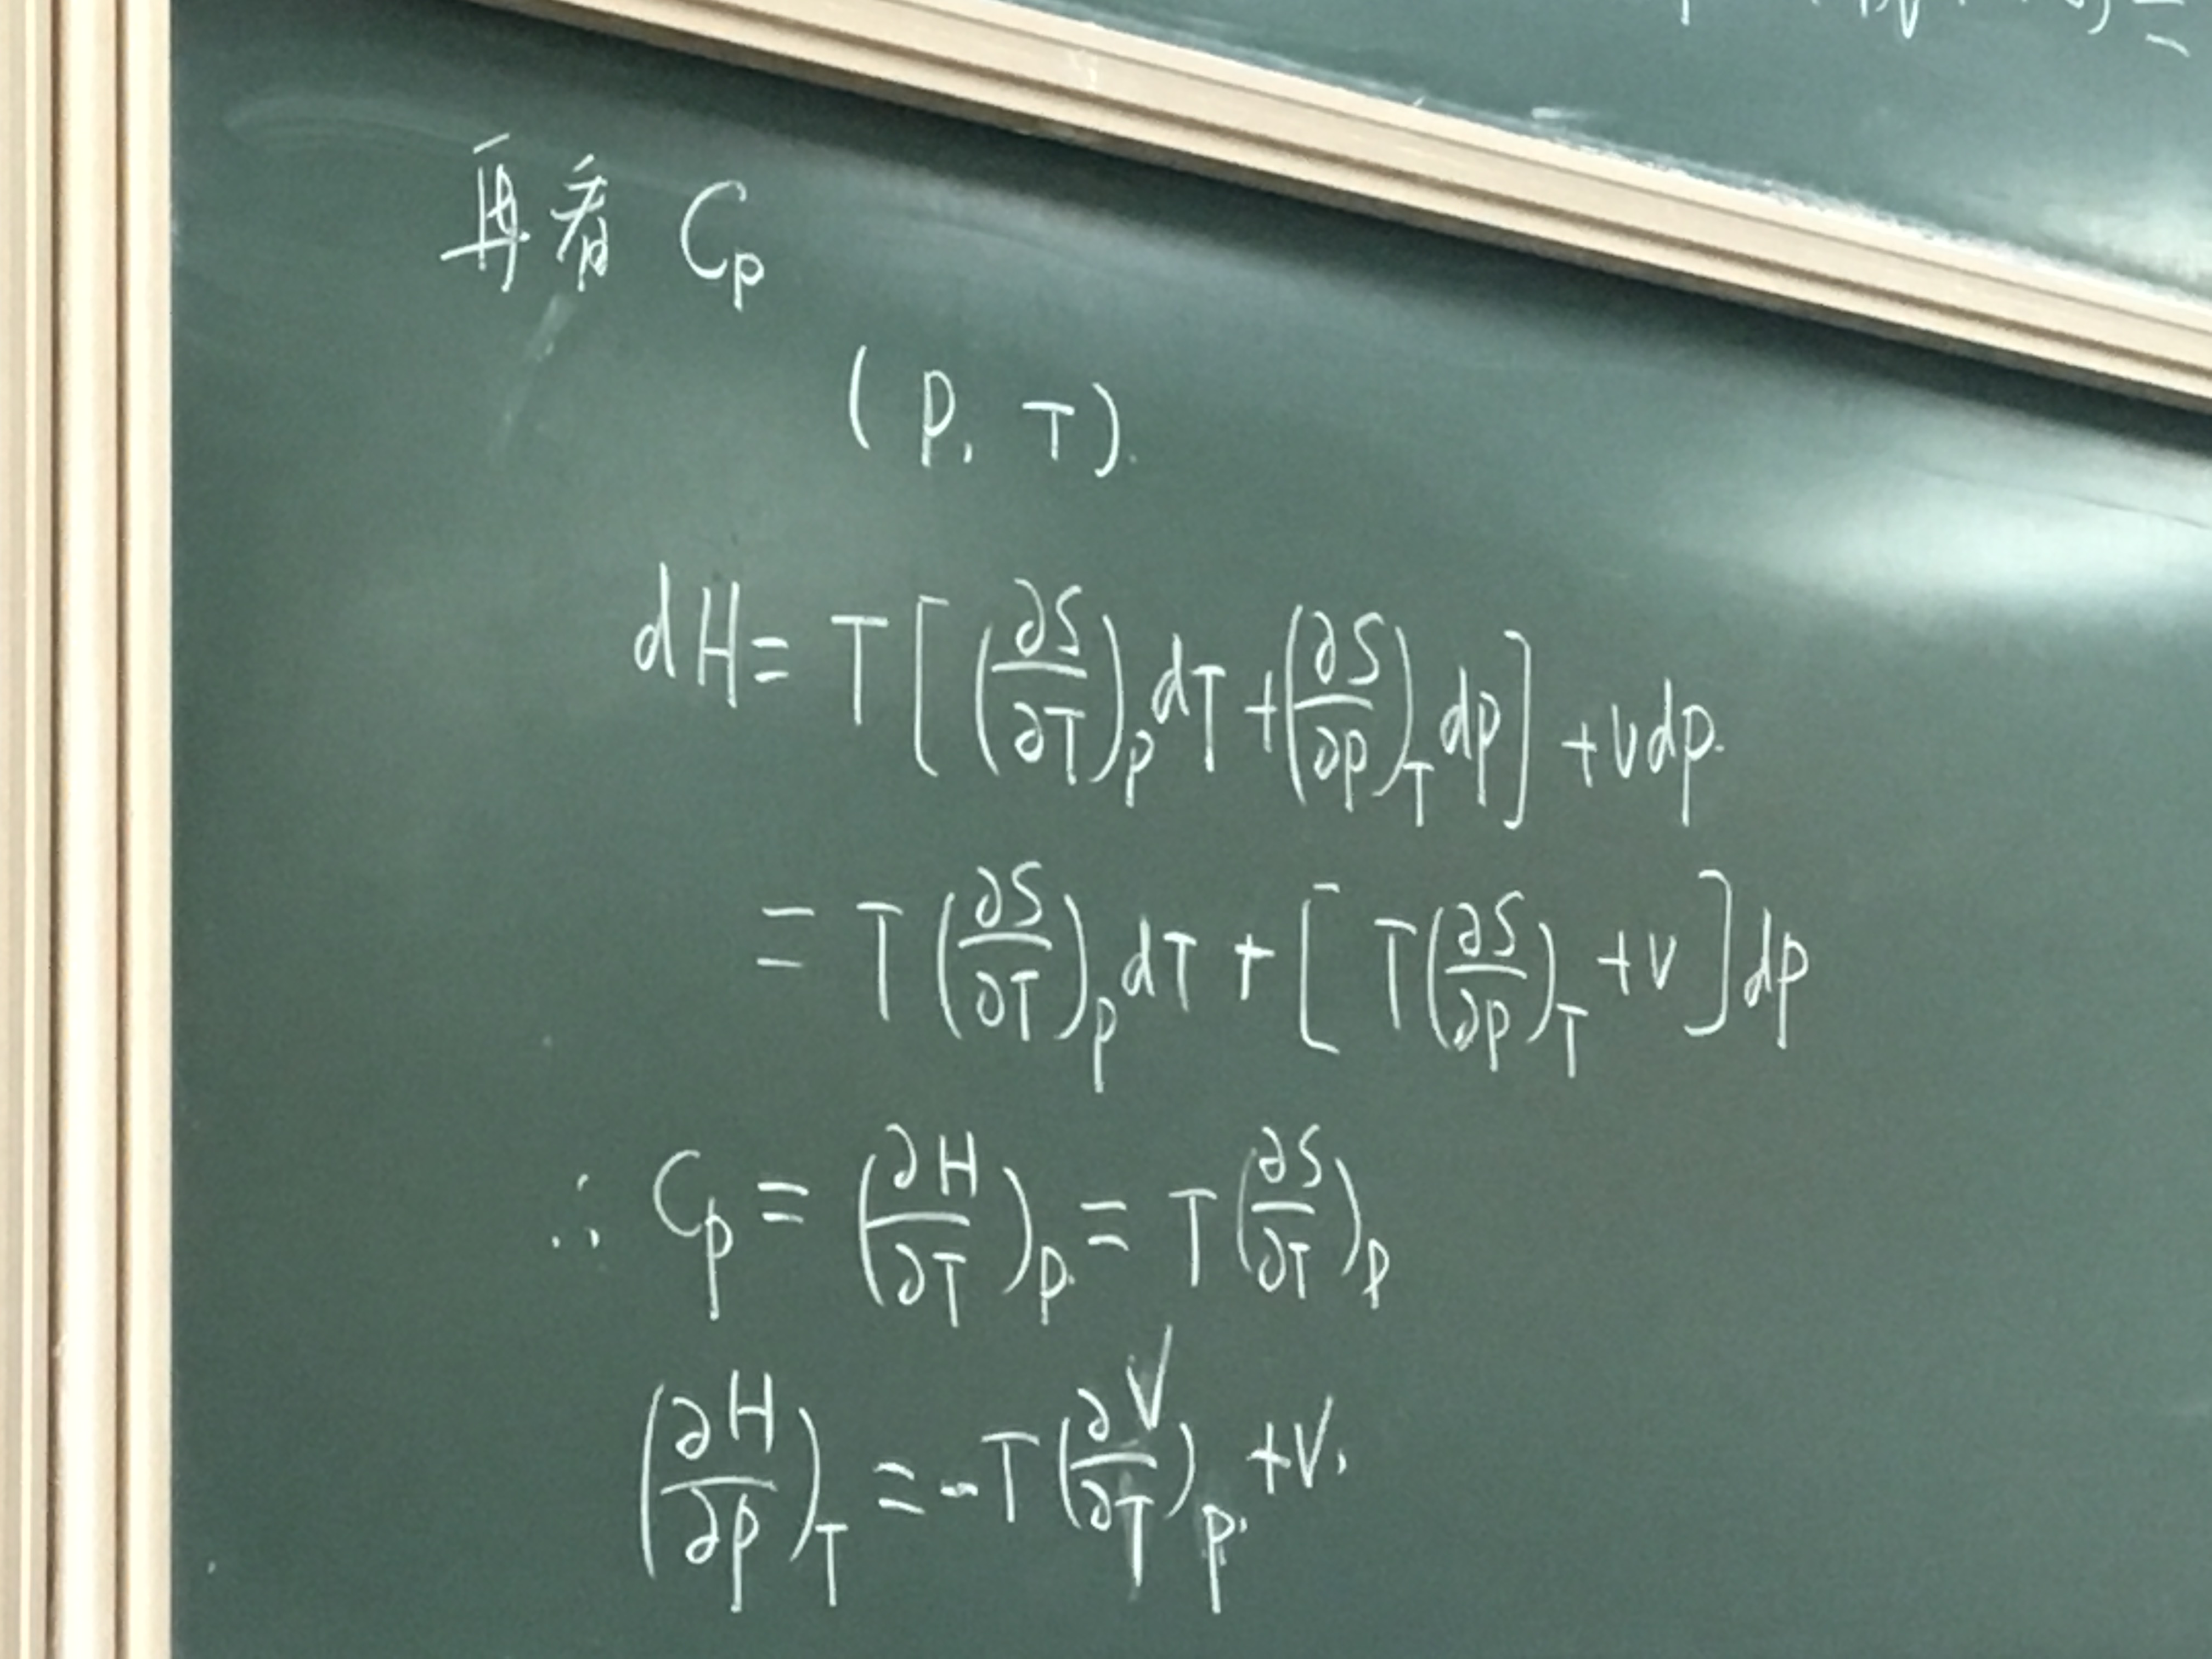 再看 Cp
(P, T).
dH = T[(∂S/∂T)_P dT + (∂S/∂P)_T dp] + Vdp.
= T(∂S/∂T)_P dT + [T(∂S/∂P)_T + V]dp
∴ Cp = (∂H/∂T)_P = T(∂S/∂T)_P
(∂H/∂P)_T = -T(∂V/∂T)_P + V.